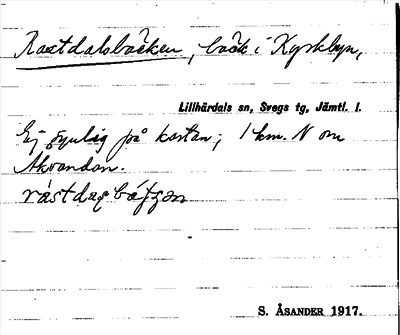 Rastdalsbäcken, bäck i Kyrkbyn,
Lillhärdals sn, Svegs tg, Jämtl. l.
Ej synlig på kartan; 1 km. N om
Akvandan.
S. ÅSANDER 1917.